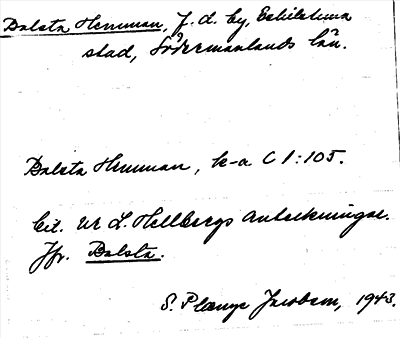 Balsta Hemman, f. d. by, Eskilstuna
stad, Södermanlands län.
Balsta Hemman, k-a C 1:105.
Cit. ur L. Hellbergs anteckningar.
Jfr. Balsta.
S. Plange Jacobson, 1943.